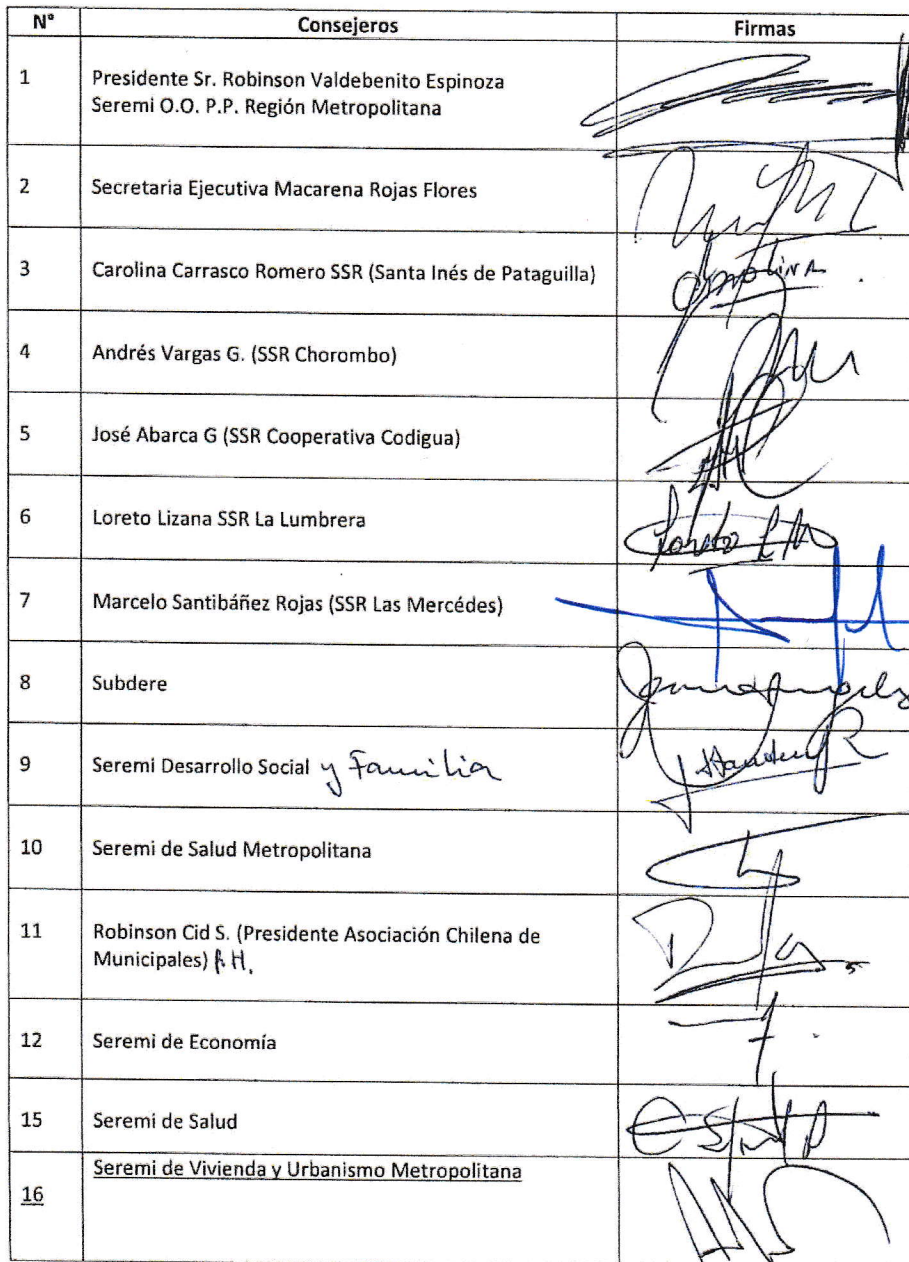 N° Consejeros Firmas
1 Presidente Sr. Robinson Valdebenito Espinoza
Seremi O.O. P.P. Región Metropolitana
2 Secretaria Ejecutiva Macarena Rojas Flores
3 Carolina Carrasco Romero SSR (Santa Inés de Pataguilla) Carolina
4 Andrés Vargas G. (SSR Chorombo)
5 José Abarca G (SSR Cooperativa Codigua)
6 Loreto Lizana SSR La Lumbrera Loreto L M
7 Marcelo Santibáñez Rojas (SSR Las Mercédes)
8 Subdere
9 Seremi Desarrollo Social y Familia
10 Seremi de Salud Metropolitana
11 Robinson Cid S. (Presidente Asociación Chilena de
Municipales) A.H.
12 Seremi de Economía
15 Seremi de Salud
Seremi de Vivienda y Urbanismo Metropolitana
16